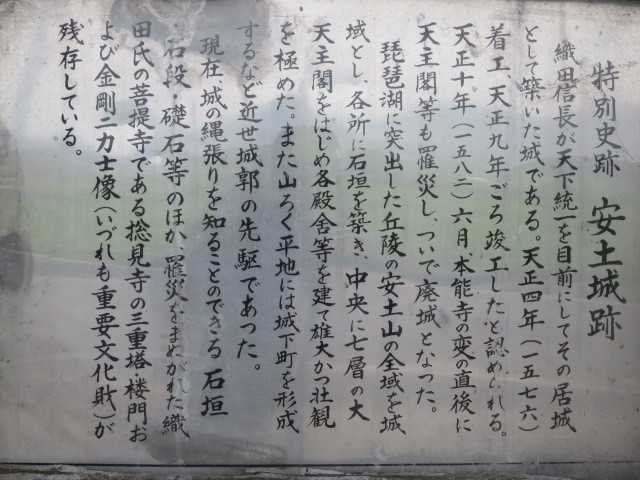 特別史跡 安土城跡
織田信長が天下統一を目前にしてその居城
として築いた城である。天正四年(一五七六)
着工、天正九年ごろ竣工したと認められる。
天正十年(一五八二)六月、本能寺の変の直後に
天主閣等も罹災し、ついで廃城となった。
琵琶湖に突出した丘陵の安土山の全域を城
域とし、各所に石垣を築き、中央に七層の大
天主閣をはじめ各殿舎等を建て雄大かつ壮観
を極めた。また山ろく平地には城下町を形成
するなど近世城郭の先駆であった。
現在城の縄張りを知ることのできる石垣
・石段・礎石等のほか、罹災をまぬがれた織
田氏の菩提寺である摠見寺の三重塔、楼門お
よび金剛二力士像(いづれも重要文化財)が
残存している。